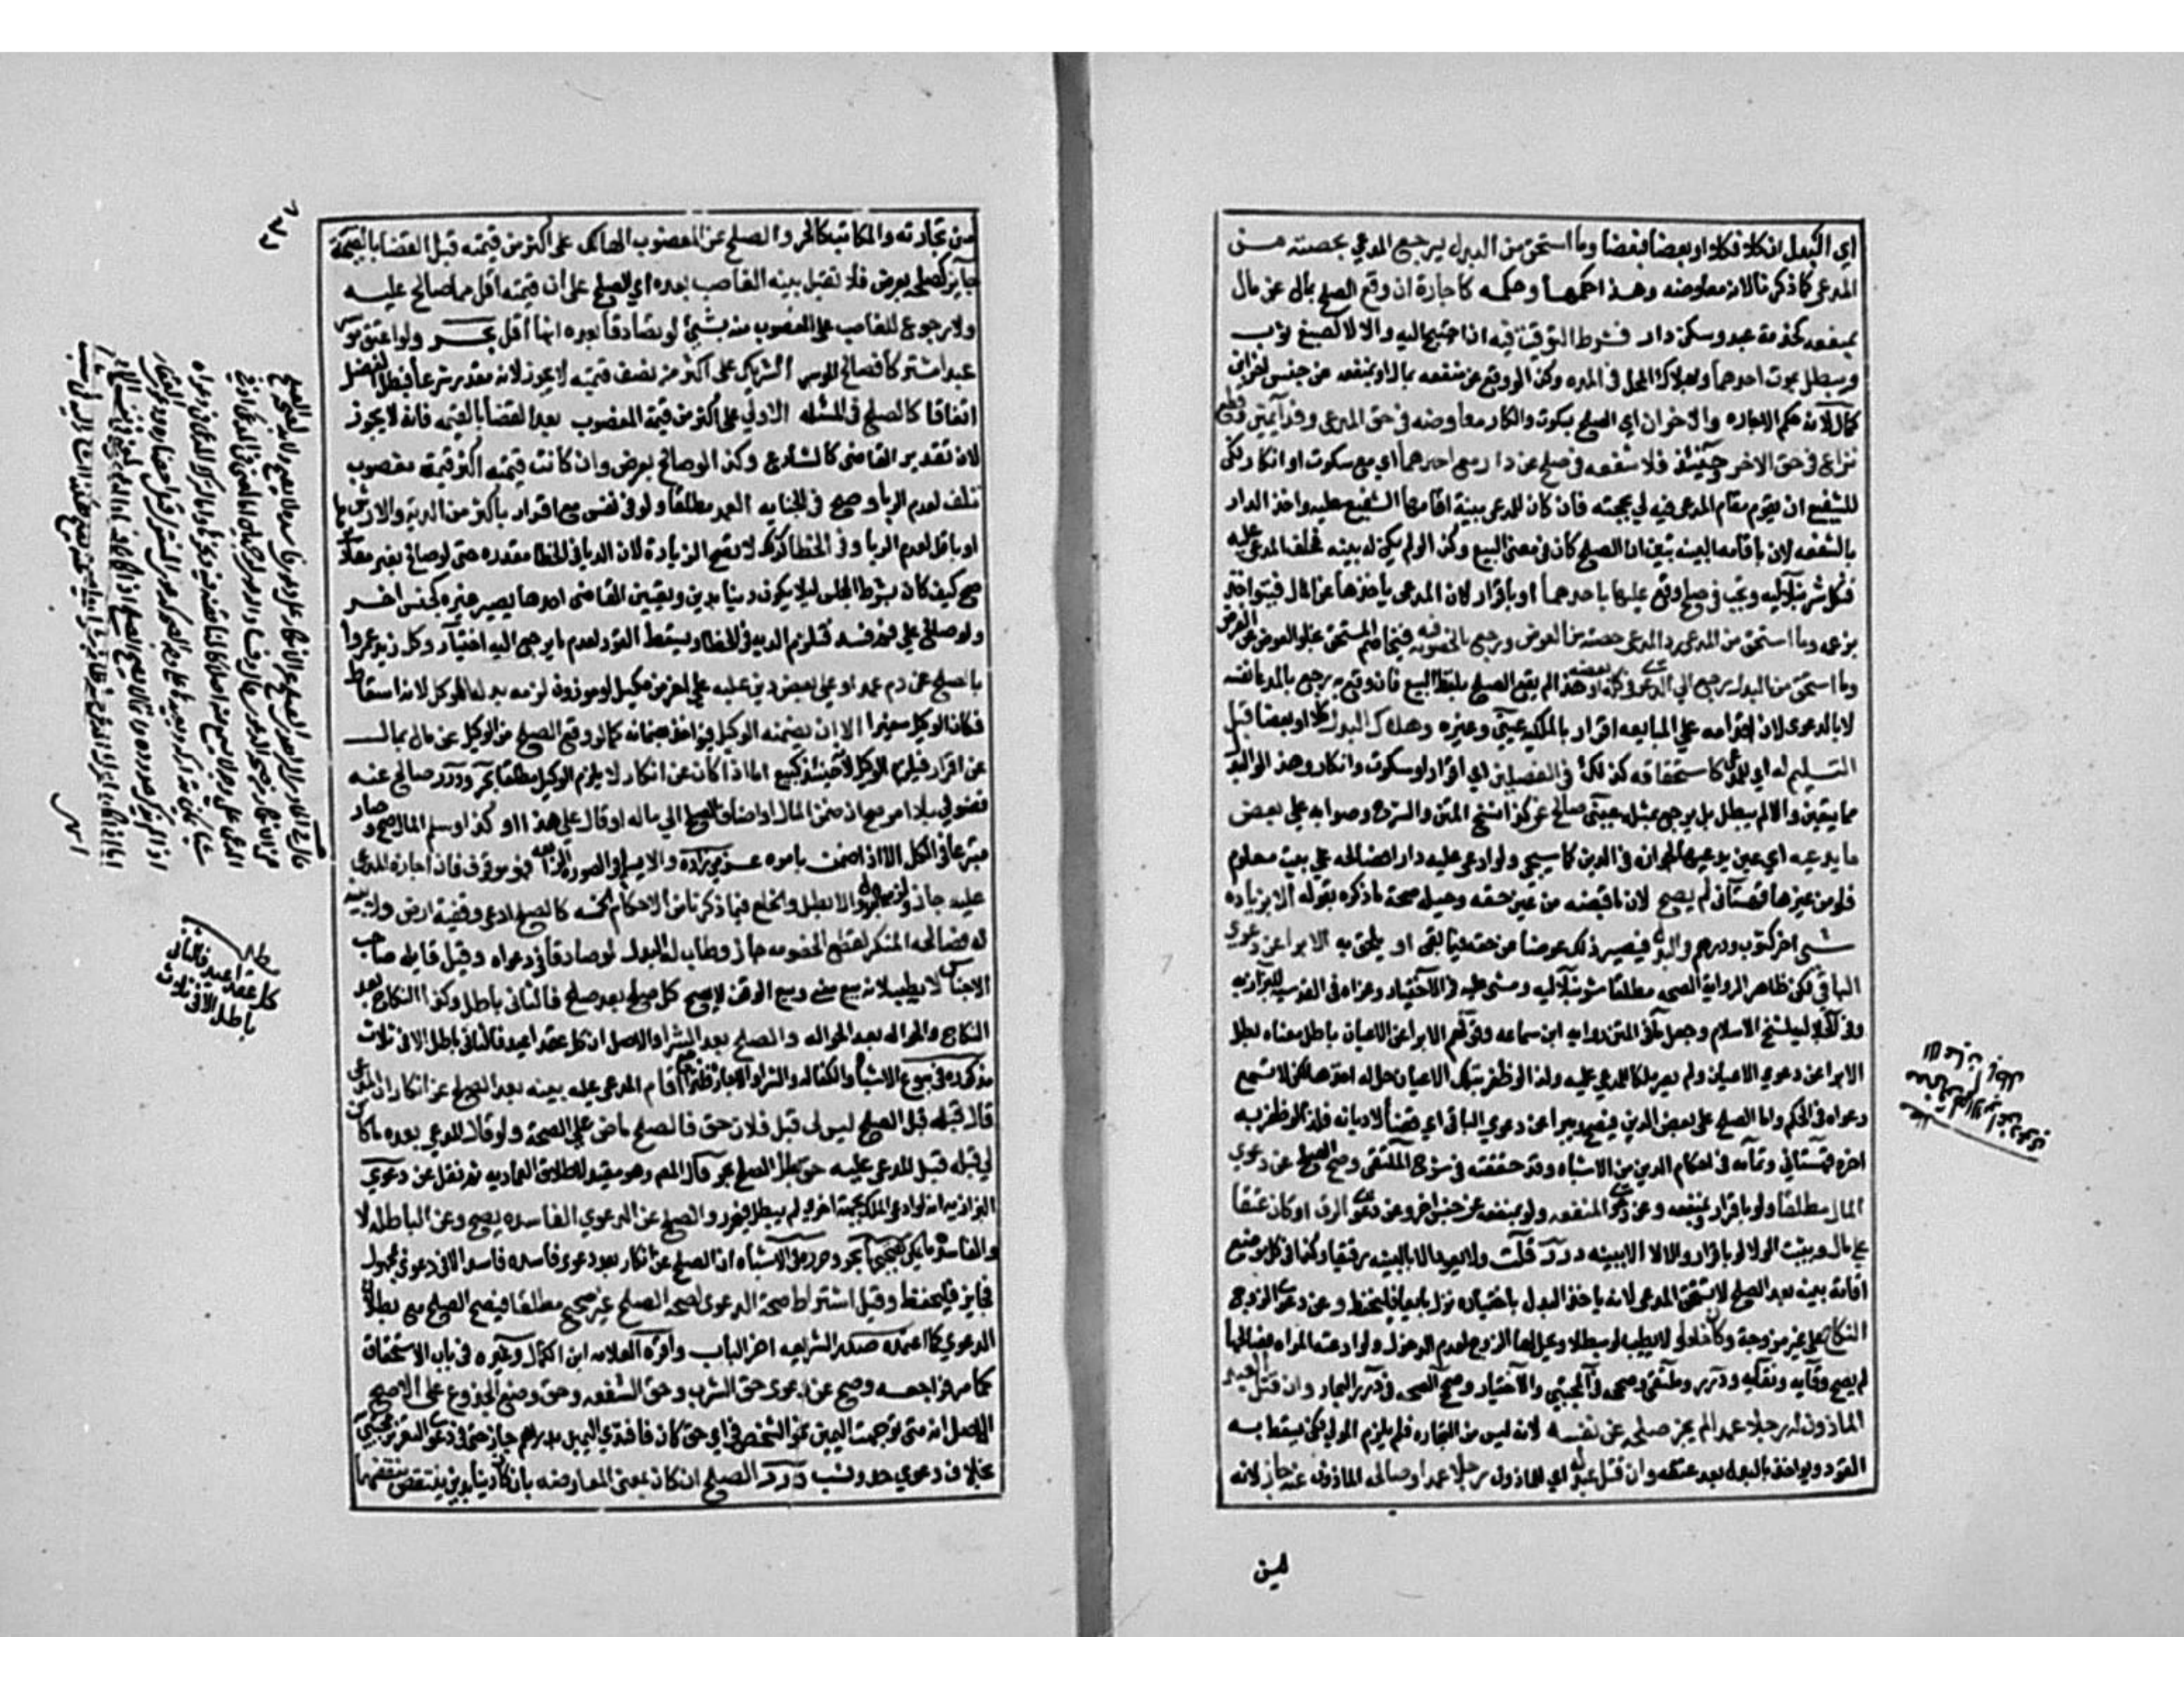 اي البدل ان كلا فكلا او بعضا فبعضا وما استحق من البدل يرجع المدعي بحصته من
المدعى كما ذكرنا لانه معاوضه وهذا حكمها وحكمه كاجارة ان وقع الصلح بمال عن مال
بمنفعه كخدمة عبد وسكنى دار فشرط التوقيت فيه ان احتيج اليه والا لا كصبغ ثوب
ويبطل بموت احدهما وبهلاك المحل في المده وكذا لو وقع عن منفعه بمال او بمنفعه عن جنس اخر ابن
كمال لانه حكم الاجاره والاخران اي الصلح بسكوت وانكار معاوضه في حق المدعي وفدا يمين وقطع
نزاع في حق الاخر وحينئذ فلا شفعه في صلح عن دار مع احدهما اي مع سكوت او انكار لكن
للشفيع ان يقوم مقام المدعي فيدلي بحجته فان كان للمدعي بينة اقامها الشفيع عليه واخذ الدار
بالشفعه لان باقامه البينه تبين ان الصلح كان في معنى البيع وكذا لو لم يكن له بينه فحلف المدعى عليه
فنكل شرنبلاليه وتجب في صلح وقع عليها باحدهما او باقرار لان المدعي ياخذها عن المال فيؤاخذ
بزعمه وما استحق من المدعى رد المدعي حصته من العوض ورجع بالخصومه فيه فيخاصم المستحق لخلو العوض عن الغرض
وما استحق من البدل يرجع الى الدعوى في كله او بعضه هذا اذا لم يقع الصلح بلفظ البيع فان وقع به رجع بالمدعى نفسه
لا بالدعوى لان اقدامه على المبايعه اقرار بالملكيه عيني وغيره وهلاك البدل كلا او بعضا قبل
التسليم له اي للمدعي كاستحقاقه كذلك في الفصلين اي اقرار او سكوت وانكار وهذا لو البدل
مما يتعين والا لم يبطل بل يرجع بمثله عيني صالح عن كذا نسخ المتن والشرح وصوابه على بعض
ما يدعيه اي عين يدعيها لجوازه في الدين كما سيجي فلو ادعى عليه دارا فصالحه على بيت معلوم
فلو من غيرها قهستاني لم يصح لان ما قبضه من عين حقه وحيلة صحة ما ذكره بقوله الا بزياده
شي اخر كثوب ودرهم والبدل فيصير ذلك عوضا من حقه فيما بقي او يلحق به الابرا عن دعوى
الباقي لكن ظاهر الرواية الصحه مطلقا شرنبلاليه ومشى عليه في الاختيار وعزاه في العزميه للبزازيه
وفي الجلاليه لشيخ الاسلام وجعل ما في المتن روايه ابن سماعه وقولهم الابرا عن الاعيان باطل معناه بطل
الابرا عن دعوى الاعيان ولم يصر ملكا للمدعى عليه ولذا لو ظفر بتلك الاعيان حل له اخذها لكن لا تسمع
دعواه في الحكم واما الصلح على بعض الدين فيصح ويبرا عن دعوى الباقي اي قضا لا ديانه فلذا لو ظفر به
اخذه قهستاني وتمامه في احكام الدين من الاشباه وقد حققته في شرح الملتقى وصح الصلح عن دعوى
المال مطلقا ولو باقرار او بمنفعه وعن دعوى المنفعه ولو بمنفعه عن جنس اخر وعن دعوى الرق وكان عتقا
على مال ويثبت الولا لو باقرار والا لا الا ببينه درر قلت ولا يعود بالبينه رقيقا وكذا في كل موضع
اقامة بينه بعد الصلح لا يستحق المدعى لانه باخذ البدل باختياره نزل بايعا فليحفظ وعن دعوى الزوج
النكاح على غير مزوجة وكان خلعا ولا يطيب لو مبطلا ويحل لها التزوج لعدم الدخول ولو ادعته المراه فصالحها
لم يصح وقايه ونقايه ودرر وملتقى وصححه في المجتبى والاختيار وصحح الصحه في درر البحار وان قتل العبد
الماذون له رجلا عمدا لم يجز صلحه عن نفسه لانه ليس من التجاره فلم يلزم المولى لكن يسقط به
القود ويواخذ بالبدل بعد عتقه وان قتل عبد له اي للماذون رجلا عمدا وصالحه الماذون عنه جاز لانه
من
من تجارته والمكاتب كالحر والصلح عن المغصوب الهالك على اكثر من قيمته قبل القضا بالقيمة
جايز كصلح بعرض فلا تقبل بينة الغاصب بعده اي الصلح على ان قيمته اقل مما صالح عليه
ولا رجوع للغاصب على المغصوب منه بشي لو تصادقا بعده انها اقل بحر ولو اعتق موسر
عبدا مشتركا فصالح الموسر الشريك على اكثر من نصف قيمته لا يجوز لانه مقدر شرعا فبطل الفضل
اتفاقا كالصلح في المسئله الاولى على اكثر من قيمة المغصوب بعد القضا بالقيمه فانه لا يجوز
لان تقدير القاضي كالشارع وكذا لو صالح بعرض وان كانت قيمته اكثر قيمة مغصوب
تلف لعدم الربا وصح في الجنايه العمد مطلقا ولو في نفس مع اقرار باكثر من الدية والارش
او باقل لعدم الربا وفي الخطا كذلك لا تصح الزيادة لان الدية في الخطا مقدره حتى لو صالح بغير مقاديرها
صح كيف كان بشرط المجلس ليلا يكون دينا بدين وتعيين القاضي احدها يصير غيره كجنس اخر
ولو صالح على خمر فسد فتلزم الديه في الخطا ويسقط القود لعدم ما يرجع اليه اختيار وكل زيد عمروا
بالصلح عن دم عمد او على بعض دين عليه على اخر من مكيل او موزون لزم بدله الموكل لانه اسقاط
فكان الوكيل سفيرا الا ان يضمنه الوكيل فيؤاخذ بضمانه كما لو وقع الصلح من الوكيل عن مال بمال
عن اقرار فيلزم الوكيل لانه حينئذ كبيع اما اذا كان عن انكار لا يلزم الوكيل مطلقا بحر ودرر صالح عنه
فضولي بلا امر صح ان ضمن المال او اضاف الصلح الى ماله او قال على هذا او كذا وسلم المال صح وصار
متبرعا في الكل الا اذا ضمن بامره عزمي زاده والا يسلم في الصورة الرابعه فهو موقوف فان اجازه المدعى
عليه جاز ولزمه البدل والا بطل والخلع فيما ذكرنا من الاحكام الخمسه كالصلح ادعى وقفية ارض ولا بينة
له فصالحه المنكر لقطع الخصومه جاز وطاب له البدل لو صادقا في دعواه وقيل قايله صاحب
الاجناس لا يطيب لانه بيع معنى وبيع الوقف لا يصح كل صلح بعد صلح فالثاني باطل وكذا النكاح بعد
النكاح والحواله بعد الحواله والصلح بعد الشرا والاصل ان كل عقد اعيد فالثاني باطل الا في ثلاث
مذكوره في بيوع الاشباه الكفاله والشرا والاجاره فلتراجع اقام المدعى عليه بينه بعد الصلح عن انكار ان المدعي
قال قبله قبل الصلح ليس لي قبل فلان حق فالصلح ماض على الصحة ولو قال المدعي بعده ما كان
لي قبله قبل المدعى عليه حق بطل الصلح بحر قال المص وهو مقيد لاطلاق العماديه ثم نقل عن دعوى
البزازيه انه لو ادعى الملك بجهة اخرى لم يبطل فيحرر والصلح عن الدعوى الفاسده يصح وعن الباطله لا
والفاسده ما يمكن تصحيحها بحر وحرر في الاشباه ان الصلح عن انكار بعد دعوى فاسده فاسد الا في دعوى مجهول
فجايز فليحفظ وقيل اشتراط صحة الدعوى لصحة الصلح غير صحيح مطلقا فيصح الصلح مع بطلان
الدعوى كما اعتمده صدر الشريعه اخر الباب واقره العلامه ابن الكمال وغيره في باب الاستحقاق
كما مر فراجعه وصح عن دعوى حق الشرب وحق الشفعه وحق وضع الجذوع على الاصح
الاصل انه متى توجهت اليمين نحو الشخص في اي حق كان فافتدى اليمين بدراهم جاز حتى في دعوى التعزير مجتبى
بخلاف دعوى حد ونسب درر الصلح ان كان بمعنى المعاوضه بان كان دينا بدين ينتقض بنقضهما
مطلب
كل عقد اعيد فالثاني
باطل الا في ثلاث